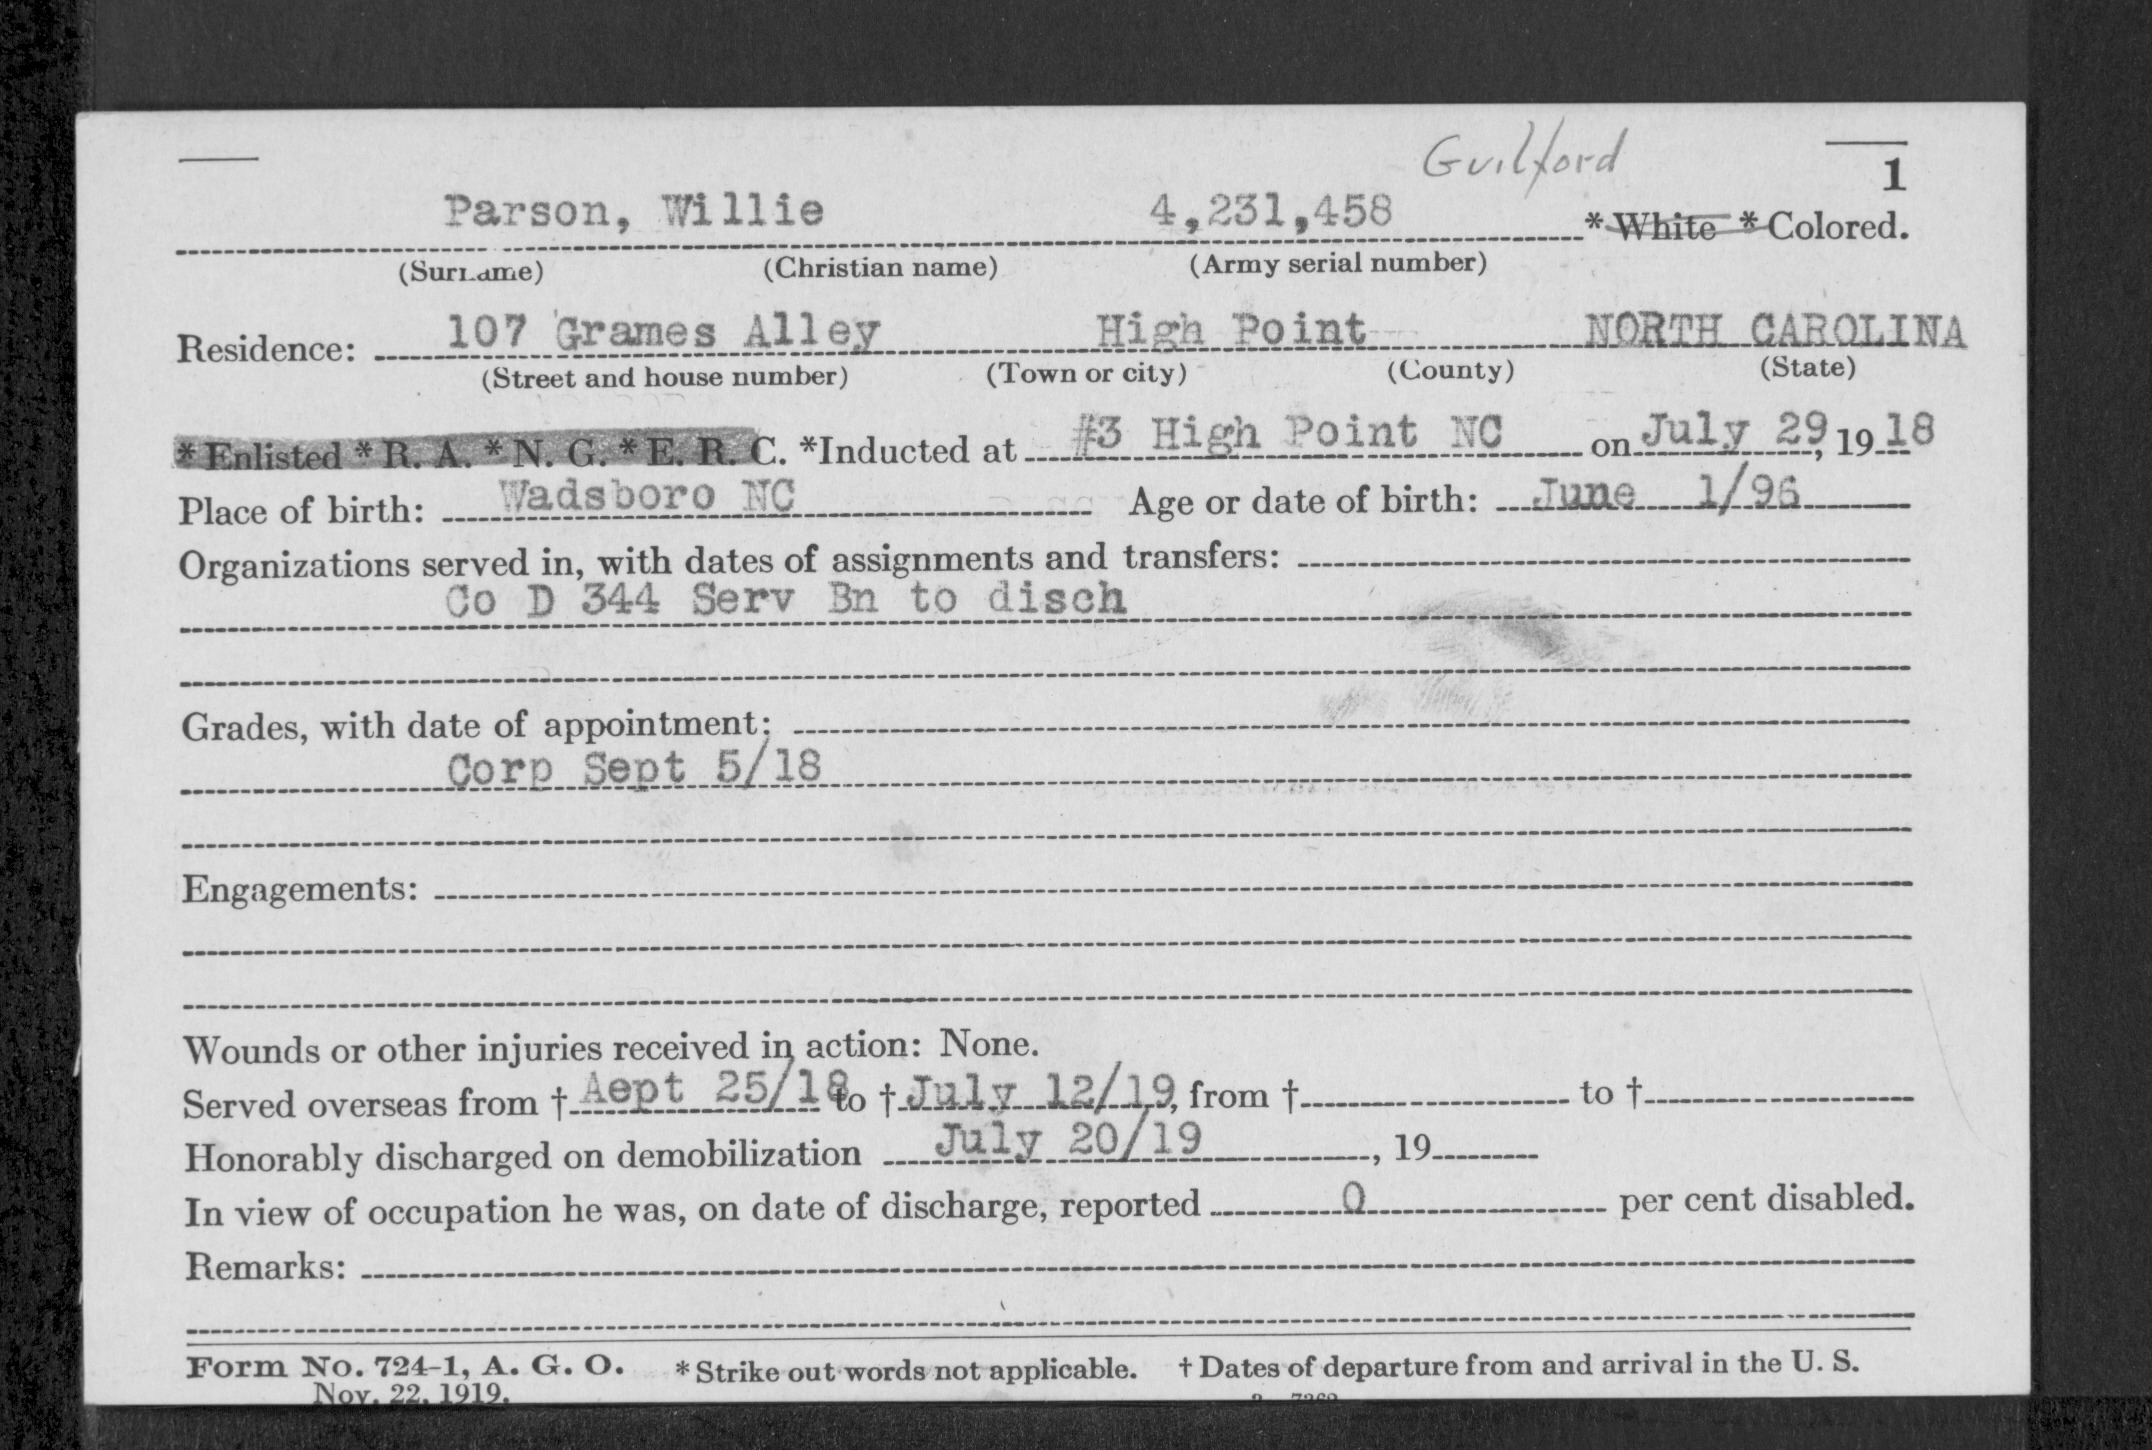 Guilford
1
Parson, Willie 4,231,458 *White *Colored.
(Surname) (Christian name) (Army serial number)
Residence: 107 Grames Alley High Point NORTH CAROLINA
(Street and house number) (Town or city) (County) (State)
*Enlisted *R. A. *N. G. *E. R. C. *Inducted at #3 High Point NC on July 29, 1918
Place of birth: Wadsboro NC Age or date of birth: June 1/96
Organizations served in, with dates of assignments and transfers:
Co D 344 Serv Bn to disch
Grades, with date of appointment:
Corp Sept 5/18
Engagements:
Wounds or other injuries received in action: None.
Served overseas from † Aept 25/18 to † July 12/19, from † to †
Honorably discharged on demobilization July 20/19, 19
In view of occupation he was, on date of discharge, reported 0 per cent disabled.
Remarks:
Form No. 724-1, A. G. O. *Strike out words not applicable. † Dates of departure from and arrival in the U. S.
Nov. 22, 1919.